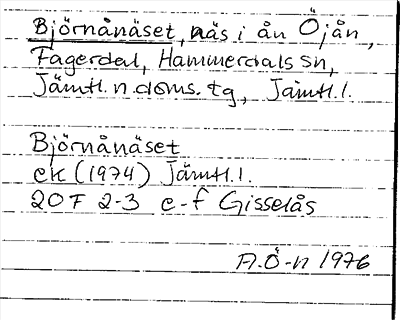 Björnånäset, näs i ån Öjån,
Fagerdal, Hammerdals sn,
Jämtl. n. doms. tg, Jämtl. l.
Björnånäset
ek (1974) Jämtl. l.
20F 2-3 e-f Gisselås
A.Ö-n 1976